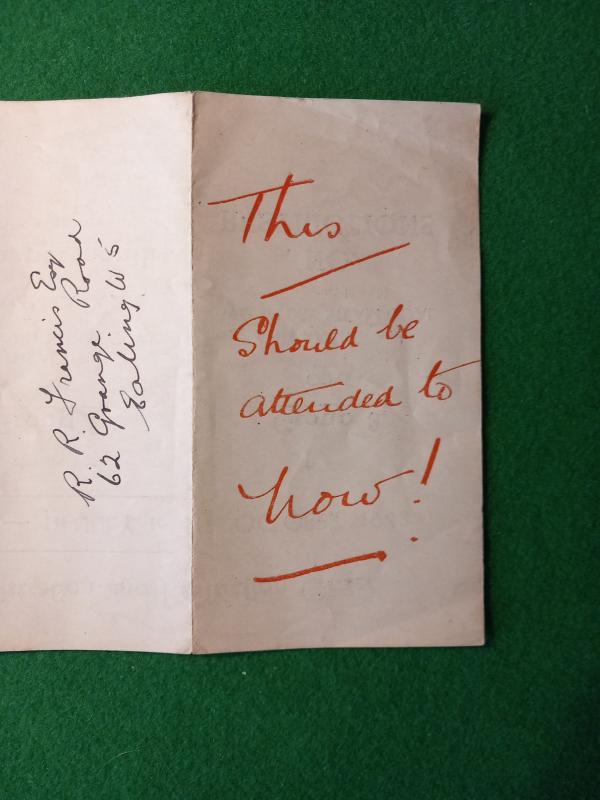 R. R. Francis Esq
62 Grange Road
Ealing W 5
This
Should be
attended to
Now!